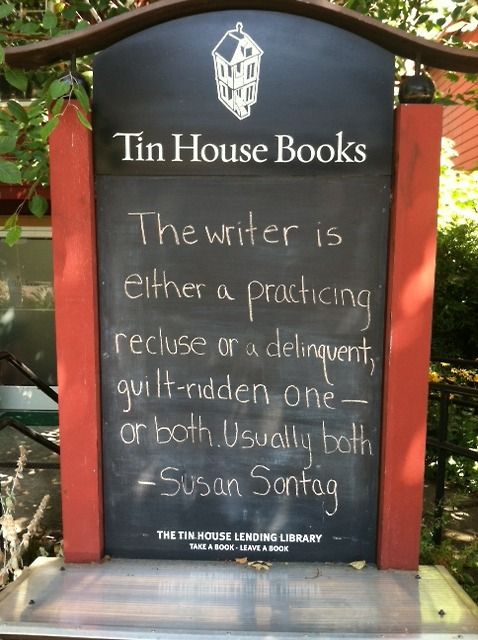 Tin House Books
The writer is
either a practicing
recluse or a delinquent,
guilt-ridden one—
or both. Usually both
-Susan Sontag
THE TIN HOUSE LENDING LIBRARY
TAKE A BOOK - LEAVE A BOOK